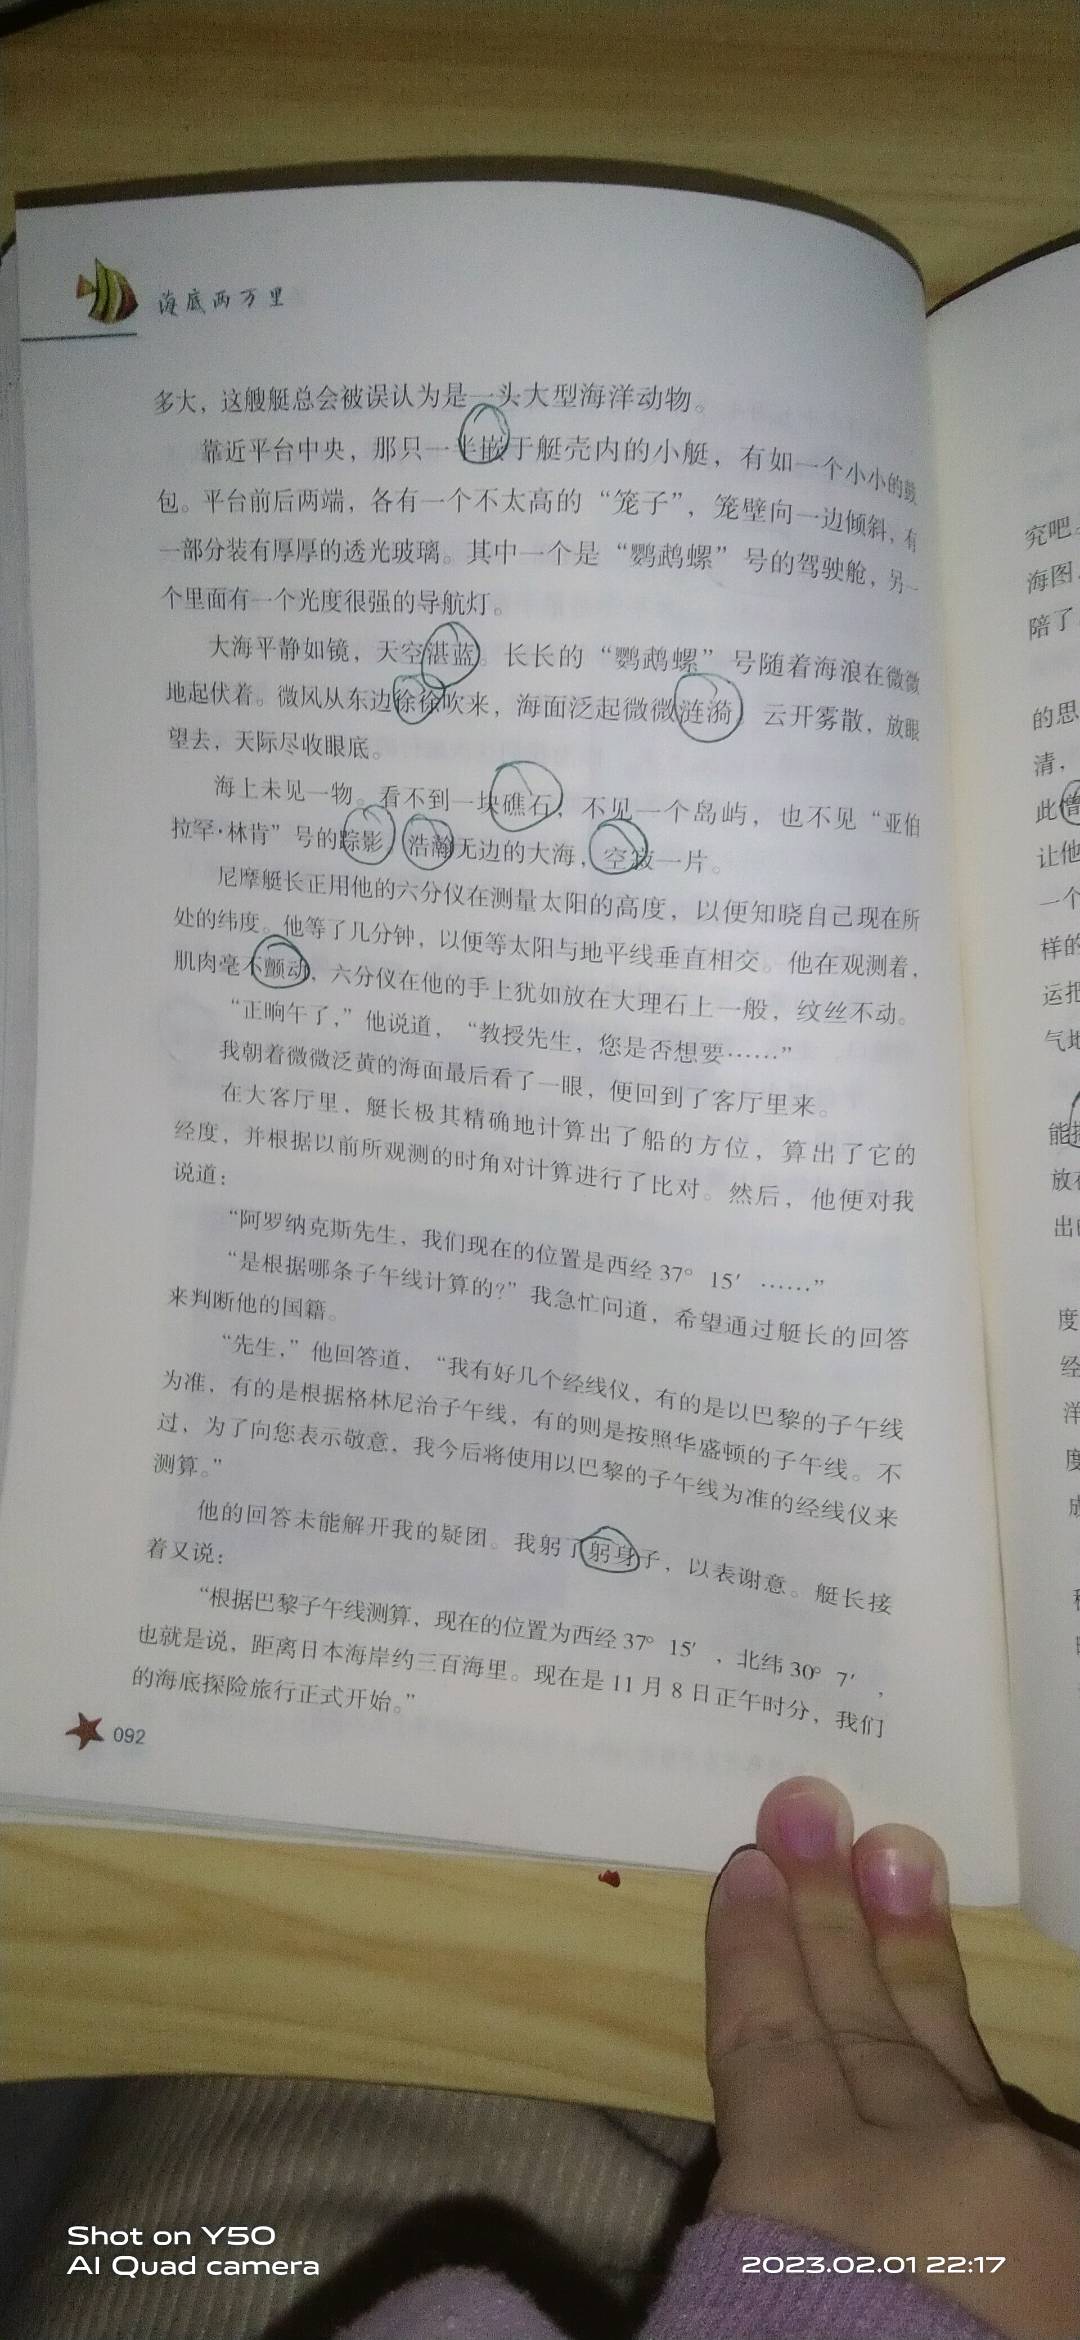 海底两万里
多大，这艘艇总会被误认为是一头大型海洋动物。
靠近平台中央，那只一半嵌于艇壳内的小艇，有如一个小小的鼓
包。平台前后两端，各有一个不太高的“笼子”，笼壁向一边倾斜，有
一部分装有厚厚的透光玻璃。其中一个是“鹦鹉螺”号的驾驶舱，另一
个里面有一个光度很强的导航灯。
大海平静如镜，天空湛蓝。长长的“鹦鹉螺”号随着海浪在微微
地起伏着。微风从东边徐徐吹来，海面泛起微微涟漪。云开雾散，放眼
望去，天际尽收眼底。
海上未见一物。看不到一块礁石，不见一个岛屿，也不见“亚伯
拉罕·林肯”号的踪影。浩瀚无边的大海，空寂一片。
尼摩艇长正用他的六分仪在测量太阳的高度，以便知晓自己现在所
处的纬度。他等了几分钟，以便等太阳与地平线垂直相交。他在观测着，
肌肉毫不颤动，六分仪在他的手上犹如放在大理石上一般，纹丝不动。
“正晌午了，”他说道，“教授先生，您是否想要……”
我朝着微微泛黄的海面最后看了一眼，便回到了客厅里来。
在大客厅里，艇长极其精确地计算出了船的方位，算出了它的
经度，并根据以前所观测的时角对计算进行了比对。然后，他便对我
说道：
“阿罗纳克斯先生，我们现在的位置是西经37° 15′ ……”
“是根据哪条子午线计算的？”我急忙问道，希望通过艇长的回答
来判断他的国籍。
“先生，”他回答道，“我有好几个经线仪，有的是以巴黎的子午线
为准，有的是根据格林尼治子午线，有的则是按照华盛顿的子午线。不
过，为了向您表示敬意，我今后将使用以巴黎的子午线为准的经线仪来
测算。”
他的回答未能解开我的疑团。我躬了躬身子，以表谢意。艇长接
着又说：
“根据巴黎子午线测算，现在的位置为西经37° 15′ ，北纬30° 7′ ，
也就是说，距离日本海岸约三百海里。现在是11月8日正午时分，我们
的海底探险旅行正式开始。”
092
究吧。
海图
陪了
的思
清，
此
让他
一个
样的
运把
气地
能
放在
出
度
经
洋
度
Shot on Y50
AI Quad camera
2023.02.01 22:17